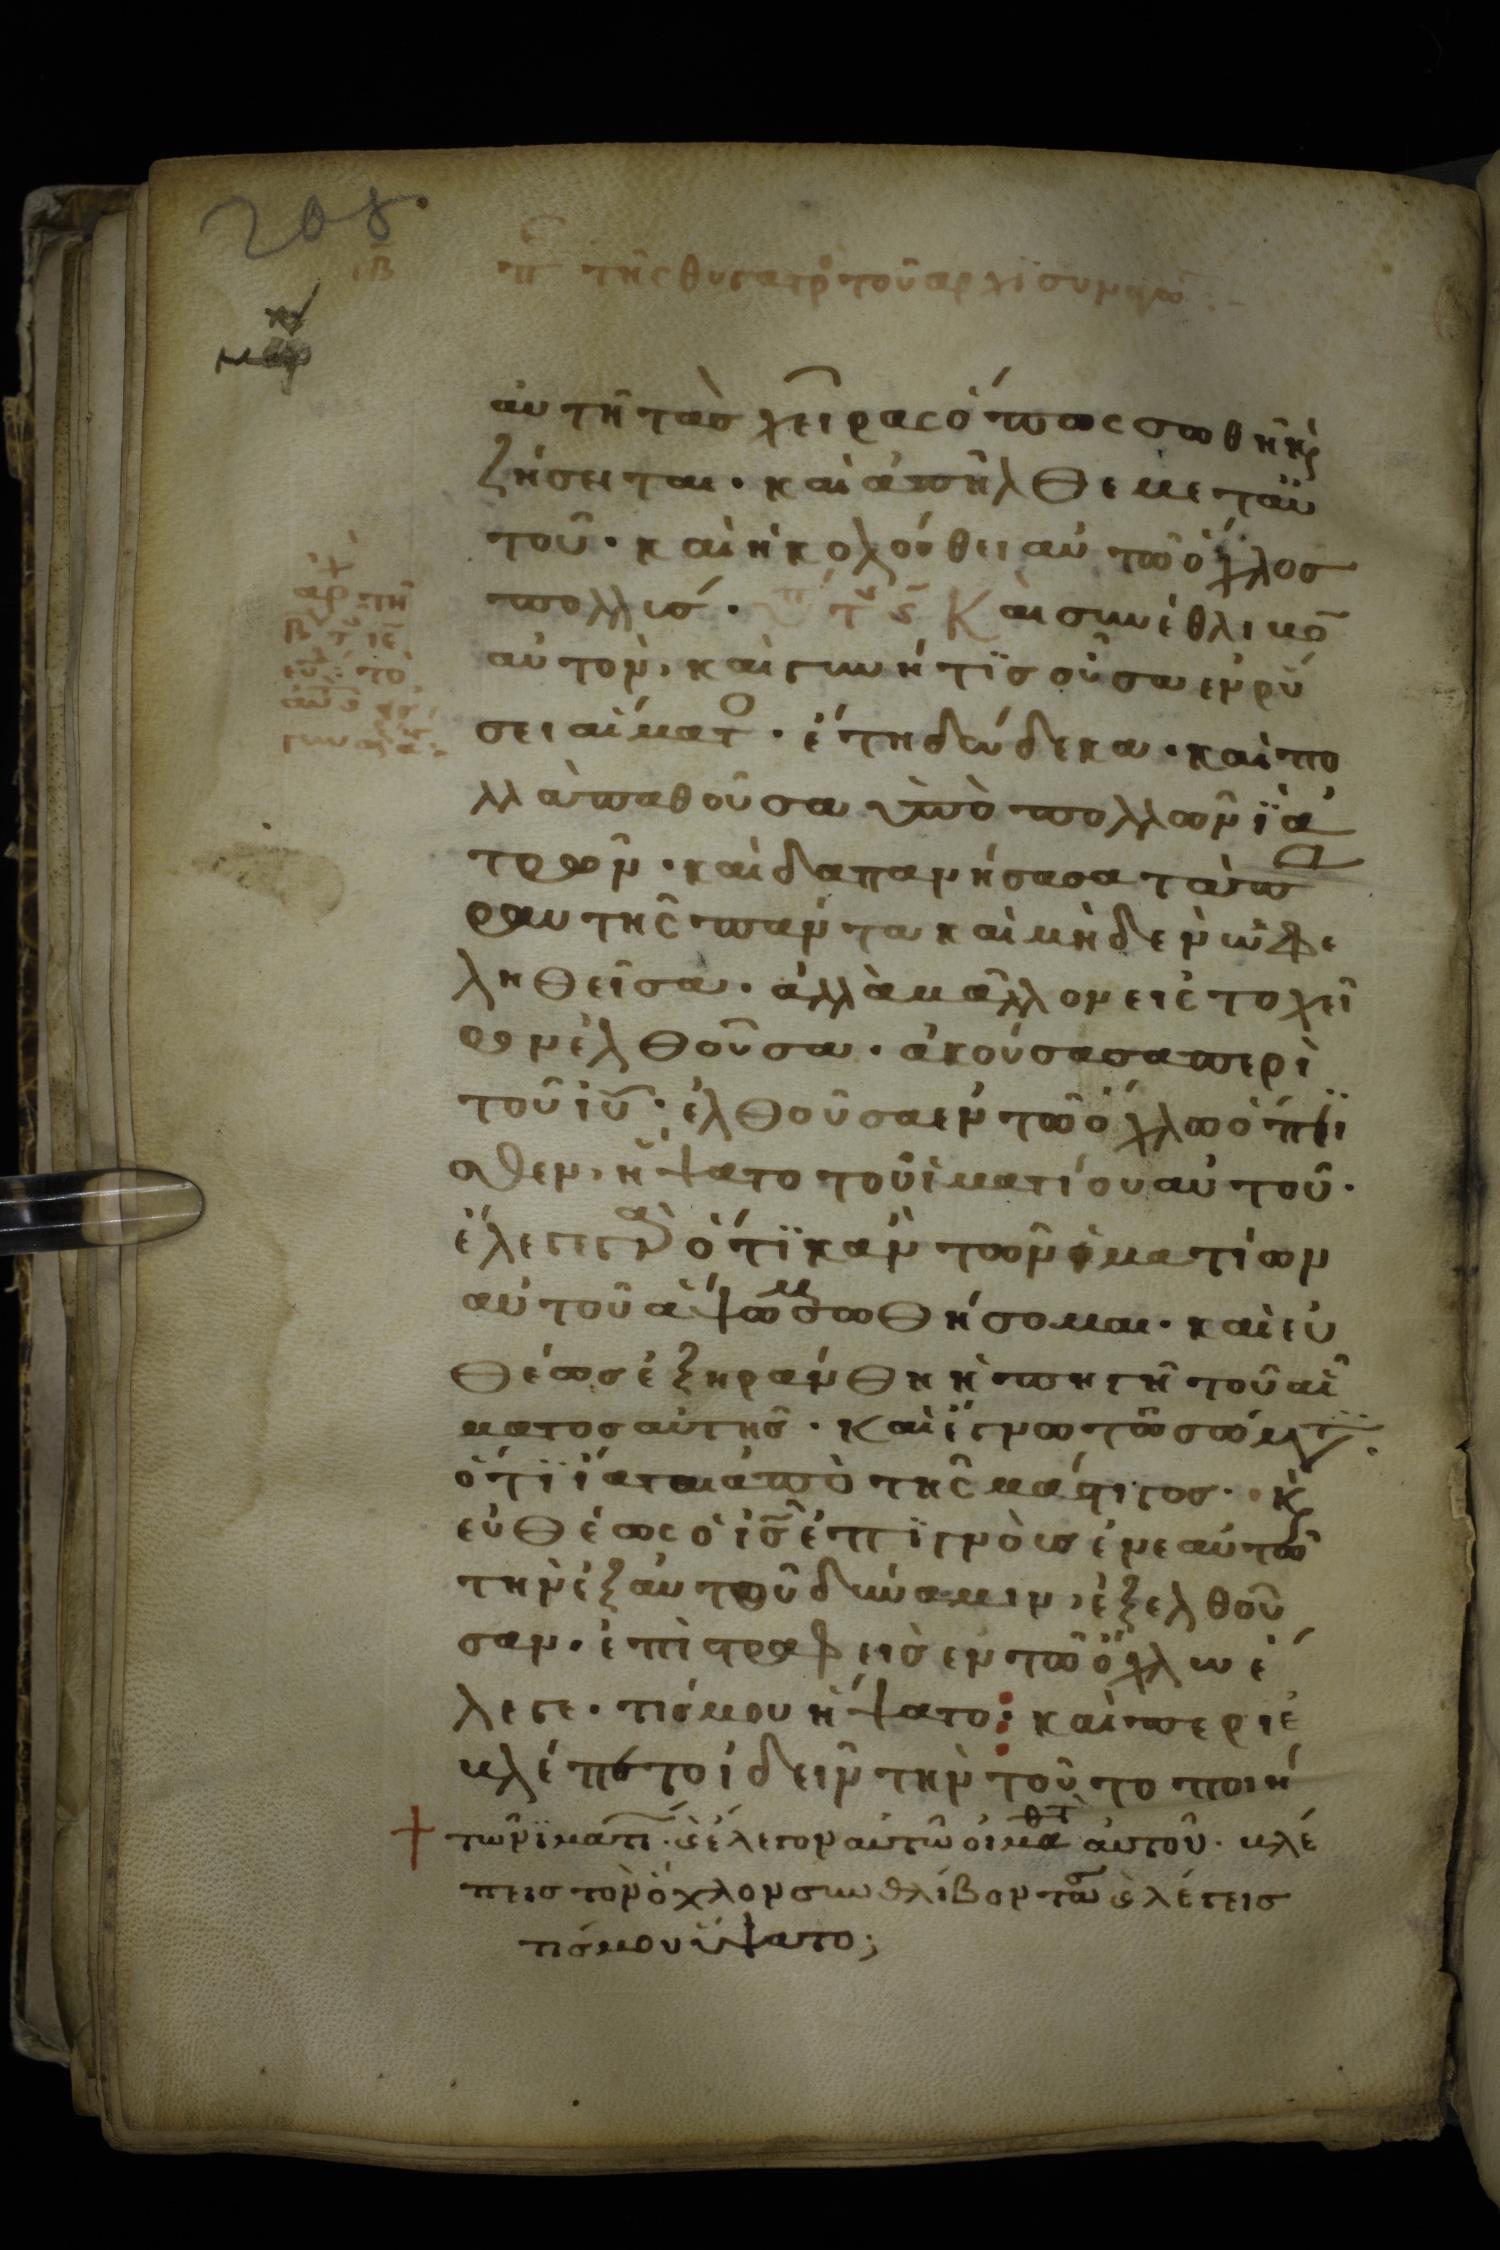 208
ιβ π τῆς θυγατρ τοῦ ἀρχϊσυναγω :-
αὐτῆ τὰσ χεῖρας ὅπως σωθῆ κ
ζήσεται · καὶ ἀπῆλθε μετ αὐ
τοῦ · καὶ ἠκολούθει αὐτῶ ὄχλος
πολλύσ · Και συνέθλιβο
αὐτον, καὶ γυνή τϊσ οὖσα εν ρύ
σει αἵματο · ἔτη δώδεκα · καὶ πο
λλὰ παθοῦσα ὑπὸ πολλῶν ϊα
τρῶν · καὶ δαπανήσασα τὰ πα
ρ αυτῆς πάντα καὶ μηδεν ὠφε
ληθεῖσα · ἀλλὰ μᾶλλον εις το χεῖ
ρον ἐλθοῦσα · ἀκούσασα περὶ
τοῦ ἰυ · ἐλθοῦσα εν τῶ ὄχλω ὄπϊ
σθεν, ἥψατο τοῦ ἱματίου αὐτοῦ ·
ἔλεγε γὰρ ὅτϊ κἂν τῶν ἱματίων
αὐτοῦ ἅψωμ σωθήσομαι · καὶ εὐ
θέωσ ἐξηράνθη ἡ πηγῆ τοῦ αἵ
ματοσ αὐτῆς · και ἔγνω τῶ σώματϊ ·
ὅτϊ ἴαται ἀπὸ τῆς μάστιγοσ · κ
εὐθέως ὁ ἰς ἐπϊγνὸυσ ἐν εαυτῶ
τὴν ἐξ αὐτοῦ δύναμιν, ἐξελθοῦ
σαν · ἐπϊστραφεισ εν τῶ ὄχλω ἔ
λεγε · τίσ μου ἥψατο : καὶ περιέ
βλέπετο ἰδεῖν την τοῦτο ποιή
τῶν ϊματι · κ ἔλεγον αὐτῶ οἱ μαθτ αὐτοῦ · βλέ
πεισ τὸν ὄχλον συνθλίβοντασ κ λέγεισ
τίσ μου ἥψατο ;